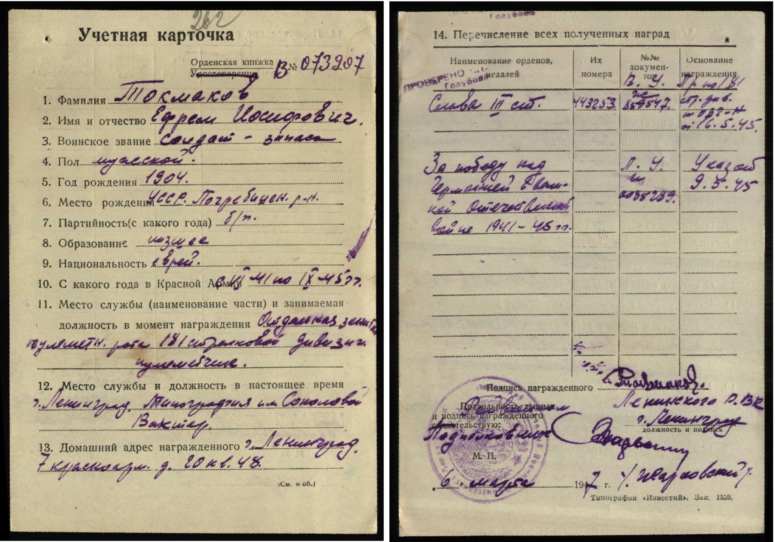 262
Учетная карточка
Орденская книжка
Удостоверение В № 073207
1. Фамилия Токмаков
2. Имя и отчество Ефрем Иосифович.
3. Воинское звание солдат - запаса
4. Пол мужской.
5. Год рождения 1904.
6. Место рождения УССР. Погребищен. р-н.
7. Партийность(с какого года) б/п.
8. Образование низшее
9. Национальность еврей.
10. С какого года в Красной Армии с VII 41 по IX 45 гг.
11. Место службы (наименование части) и занимаемая
должность в момент награждения Отдельная зенит.
пулеметн. рота 181 стрелковой дивизии
пулеметчик.
12. Место службы и должность в настоящее время
г. Ленинград. Типография им. Соколовой
Вахтер.
13. Домашний адрес награжденного г. Ленинград.
7 красноарм. д. 20 кв. 48.
(См. н об.)
14. Перечисление всех полученных наград
Наименование орденов, медалей
Их номера
№№ документов
Основание награждения
ПРОВЕРЕНО
Голубова
Слава III ст. 443253 В. У. Пр №
от 16.5.45.
За победу над Л. У. Указ от
Германией в Вели- № 9.5.45
кой Отечествен.
войне 1941-45 гг.
Подпись награжденного
Ленинского
г. Ленинград
и подпись награжденного
должность и подпись
Подполковник
М. П.
6 марта 1947 г.
Типография «Известий». Зак.